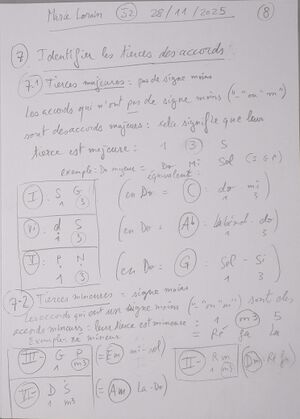 Marie Lorain S2 28/11/2025 8
7 Identifier les tierces des accords :
7-1 Tierces majeures = pas de signe moins
Les accords qui n'ont pas de signe moins ("-" ou "m")
sont des accords majeurs : cela signifie que leur
tierce est majeure : 1 3 5
exemple : Do majeur = Do Mi Sol (= C P)
équivalent :
I : S G (en Do = C : do mi)
1 3 1 3
VI : d S (en Do = Ab : Labémol - do)
1 3 1 3
V : P N (en Do = G : Sol - Si)
1 3 1 3
7-2 Tierces mineures = signe moins
Les accords qui ont un signe moins ("-" ou "m") sont des
accords mineurs : leur tierce est mineure : 1 m3 5
Exemple : Ré mineur = Ré fa La
III- G P (= Em mi-sol) II- R m (= Dm Ré fa)
1 m3 1 m3
VI- D S (= Am La-Do)
1 m3